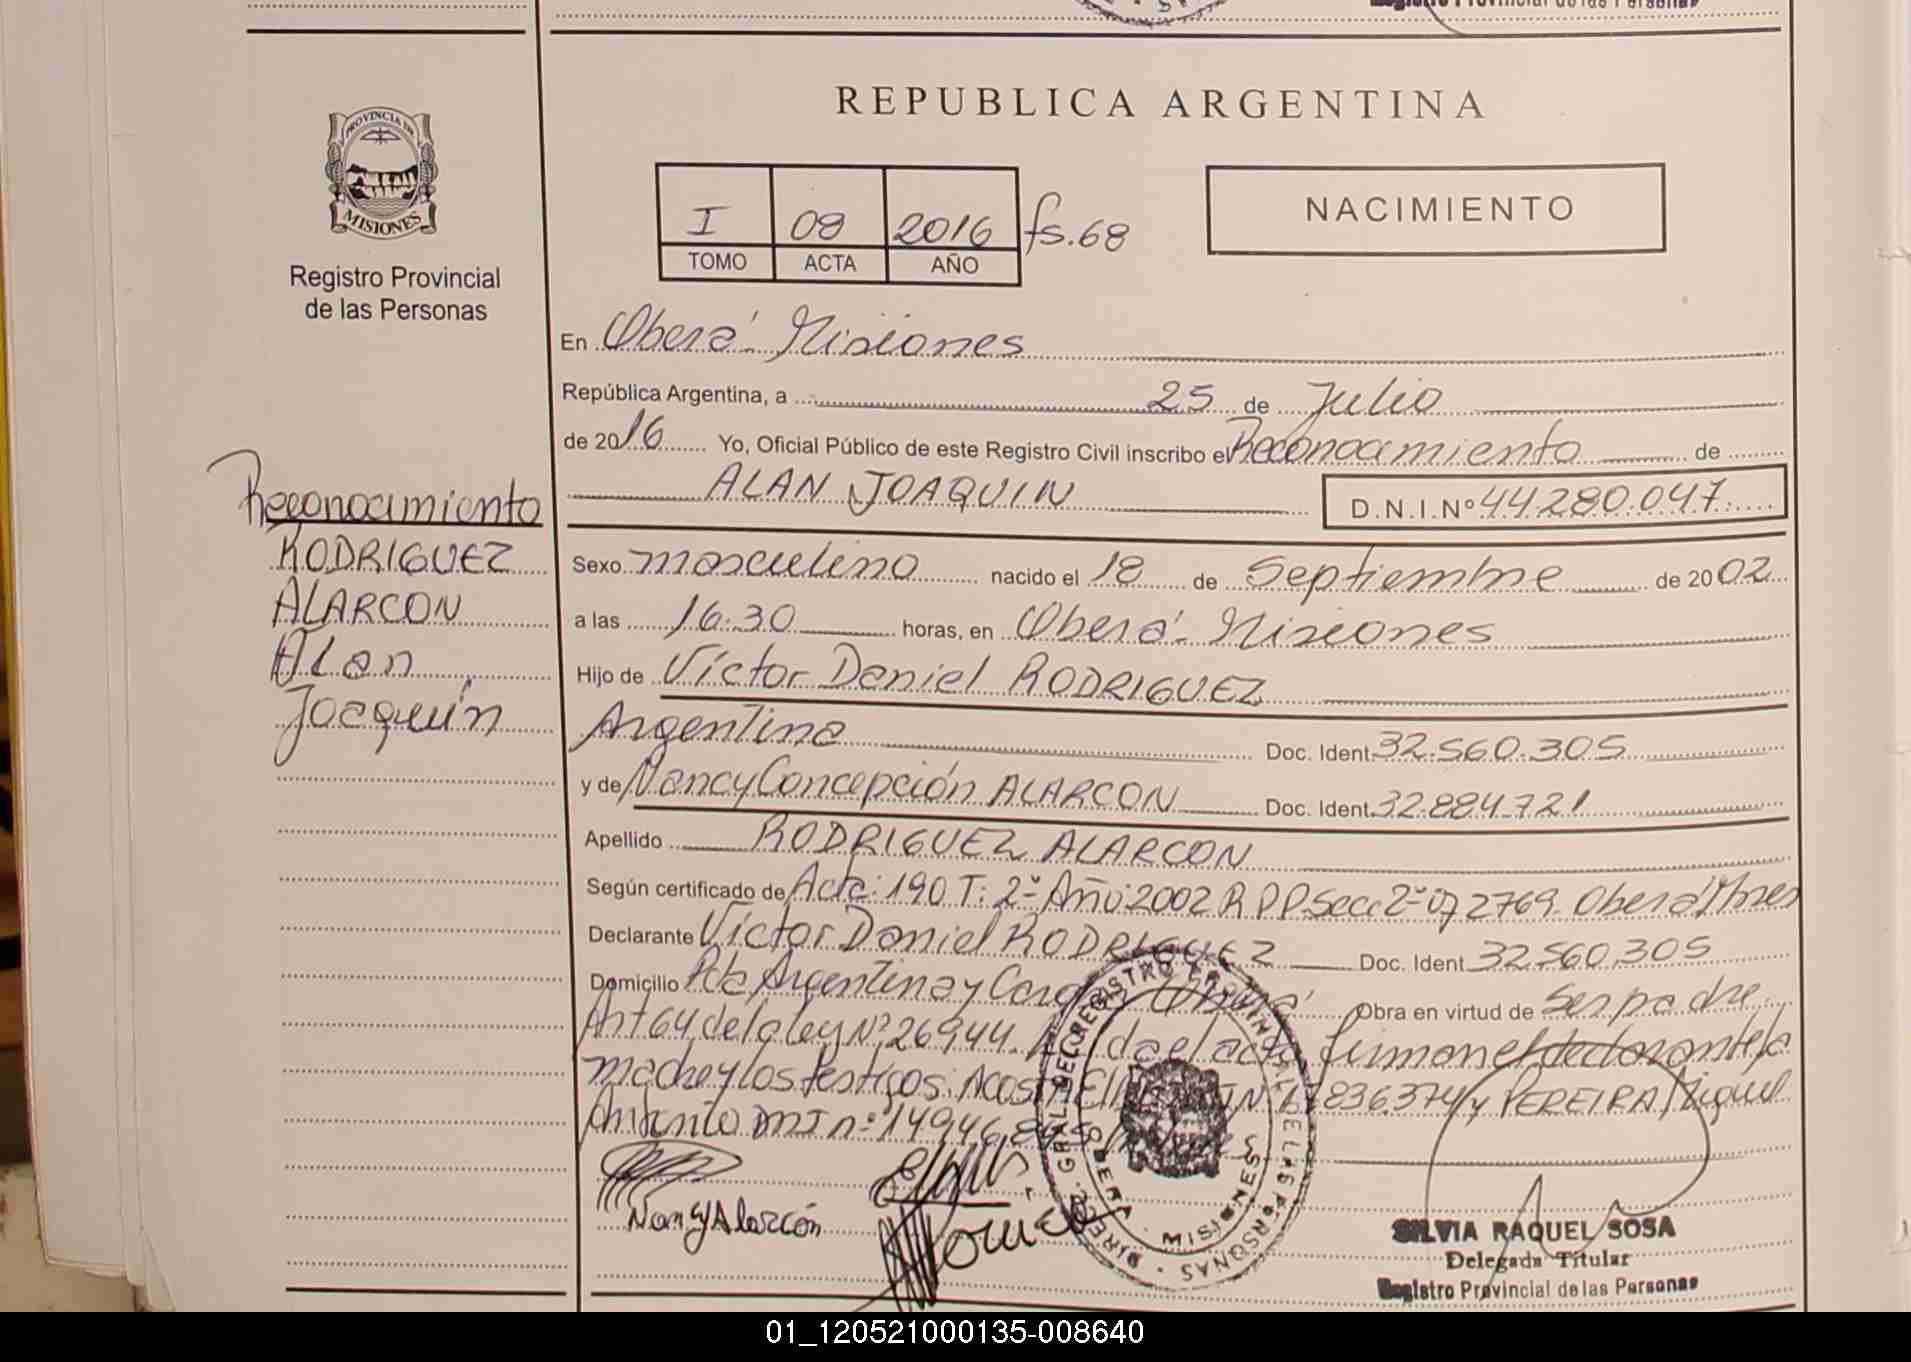 REPUBLICA ARGENTINA
PROVINCIA DE
MISIONES
Registro Provincial
de las Personas
I 08 2016 fs.68
TOMO ACTA AÑO
NACIMIENTO
En Oberá - Misiones
República Argentina, a 25 de Julio
de 2016 Yo, Oficial Público de este Registro Civil inscribo el Reconocimiento de
ALAN JOAQUIN D.N.I.Nº 44.280.047
Reconocimiento
RODRIGUEZ
ALARCON
Alan
Joaquín
Sexo masculino nacido el 18 de Septiembre de 2002
a las 16:30 horas, en Oberá - Misiones
Hijo de Víctor Daniel RODRIGUEZ
Argentina Doc. Ident. 32.560.305
y de Nancy Concepción ALARCON Doc. Ident. 32.884.721
Apellido RODRIGUEZ ALARCON
Según certificado de Acta: 190 T: 2º Año: 2002 R.P.P. Secc 2º 2769. Oberá Mnes
Declarante Víctor Daniel RODRIGUEZ Doc. Ident. 32.560.305
Domicilio Pto Argentino y Oberá Obra en virtud de Ser padre
Art 64 de la ley Nº 26944. el acta firman el declarante la
madre y los testigos: ACOSTA 17836374 y PEREIRA Miguel
Antonio MI nº 14946
Nancy Alarcón
DIREC. GRAL. DEL REGISTRO PROVINCIAL DE LAS PERSONAS
OBERA - MISIONES
SILVIA RAQUEL SOSA
Delegada Titular
Registro Provincial de las Personas
01_120521000135-008640